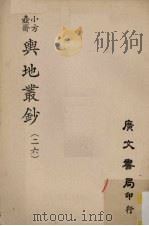 小方壺齋
輿地叢鈔
(二六)
廣文書局印行